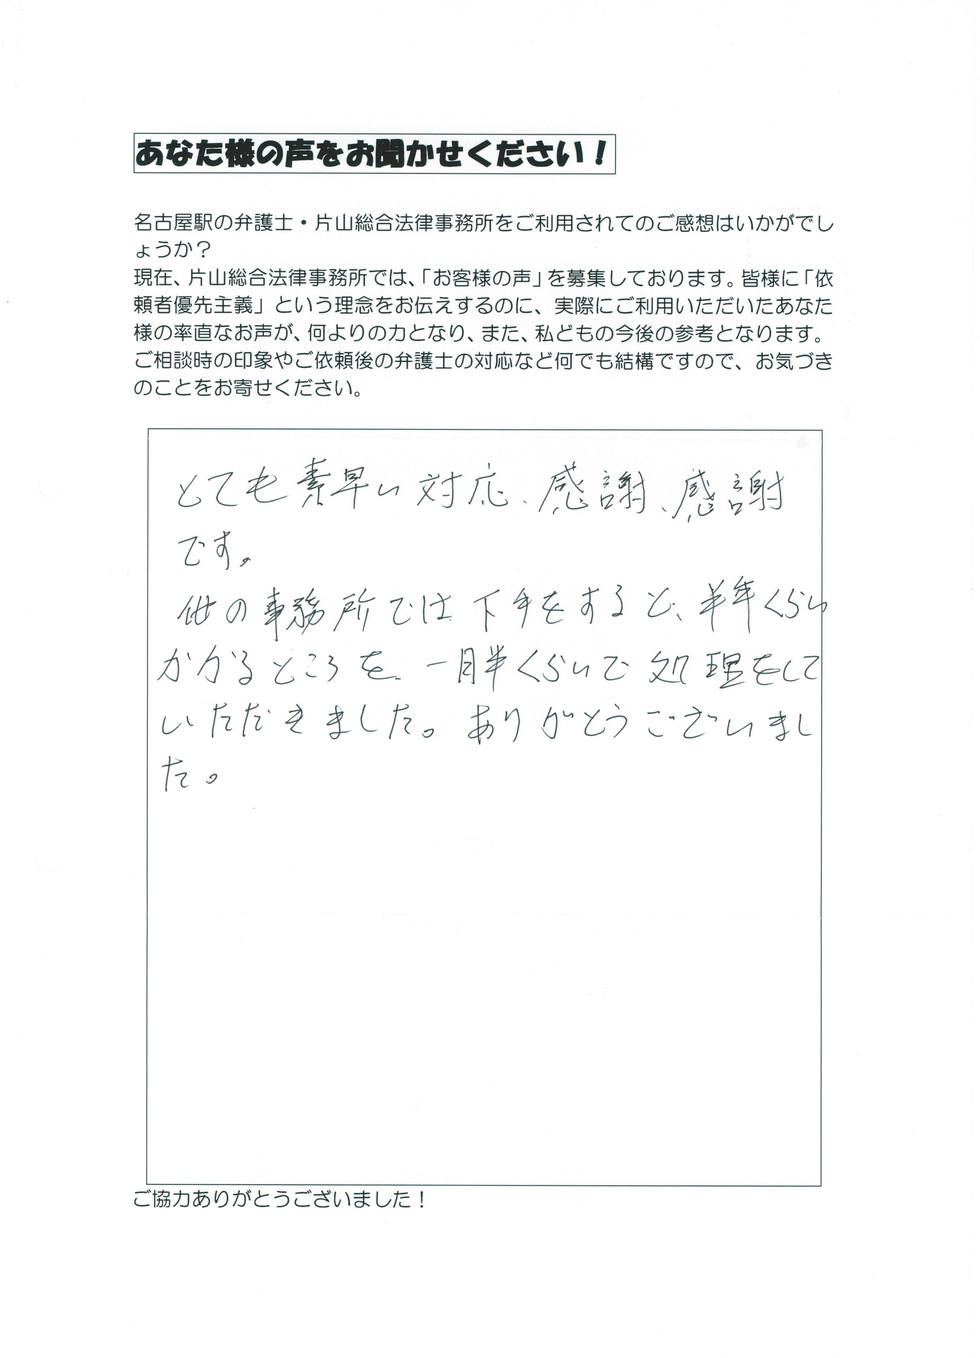 あなた様の声をお聞かせください！
名古屋駅の弁護士・片山総合法律事務所をご利用されてのご感想はいかがでし
ょうか？
現在、片山総合法律事務所では、「お客様の声」を募集しております。皆様に「依
頼者優先主義」という理念をお伝えするのに、実際にご利用いただいたあなた
様の率直なお声が、何よりの力となり、また、私どもの今後の参考となります。
ご相談時の印象やご依頼後の弁護士の対応など何でも結構ですので、お気づき
のことをお寄せください。
とても素早い対応、感謝、感謝
です。
他の事務所では下手をすると、半年くらい
かかるところを、一月半くらいで処理をして
いただきました。ありがとうございまし
た。
ご協力ありがとうございました！